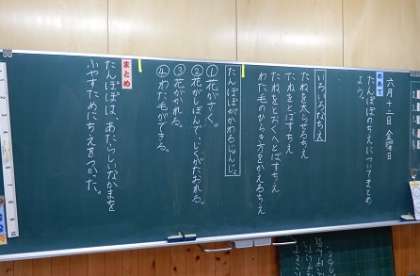 六月十二日 金曜日
めあて
たんぽぽのちえについてまとめ
よう。
いろいろなちえ
たねを太らせるちえ
たねをとばすちえ
たねをとおくへとばすちえ
わた毛のひらき方をかえるちえ
たんぽぽがかわるじゅんじょ
①花がさく。
②花がしぼんで、じくがたおれる。
③花がかれる。
④わた毛ができる。
まとめ
たんぽぽは、あたらしいなかまを
ふやすためにちえをつかった。